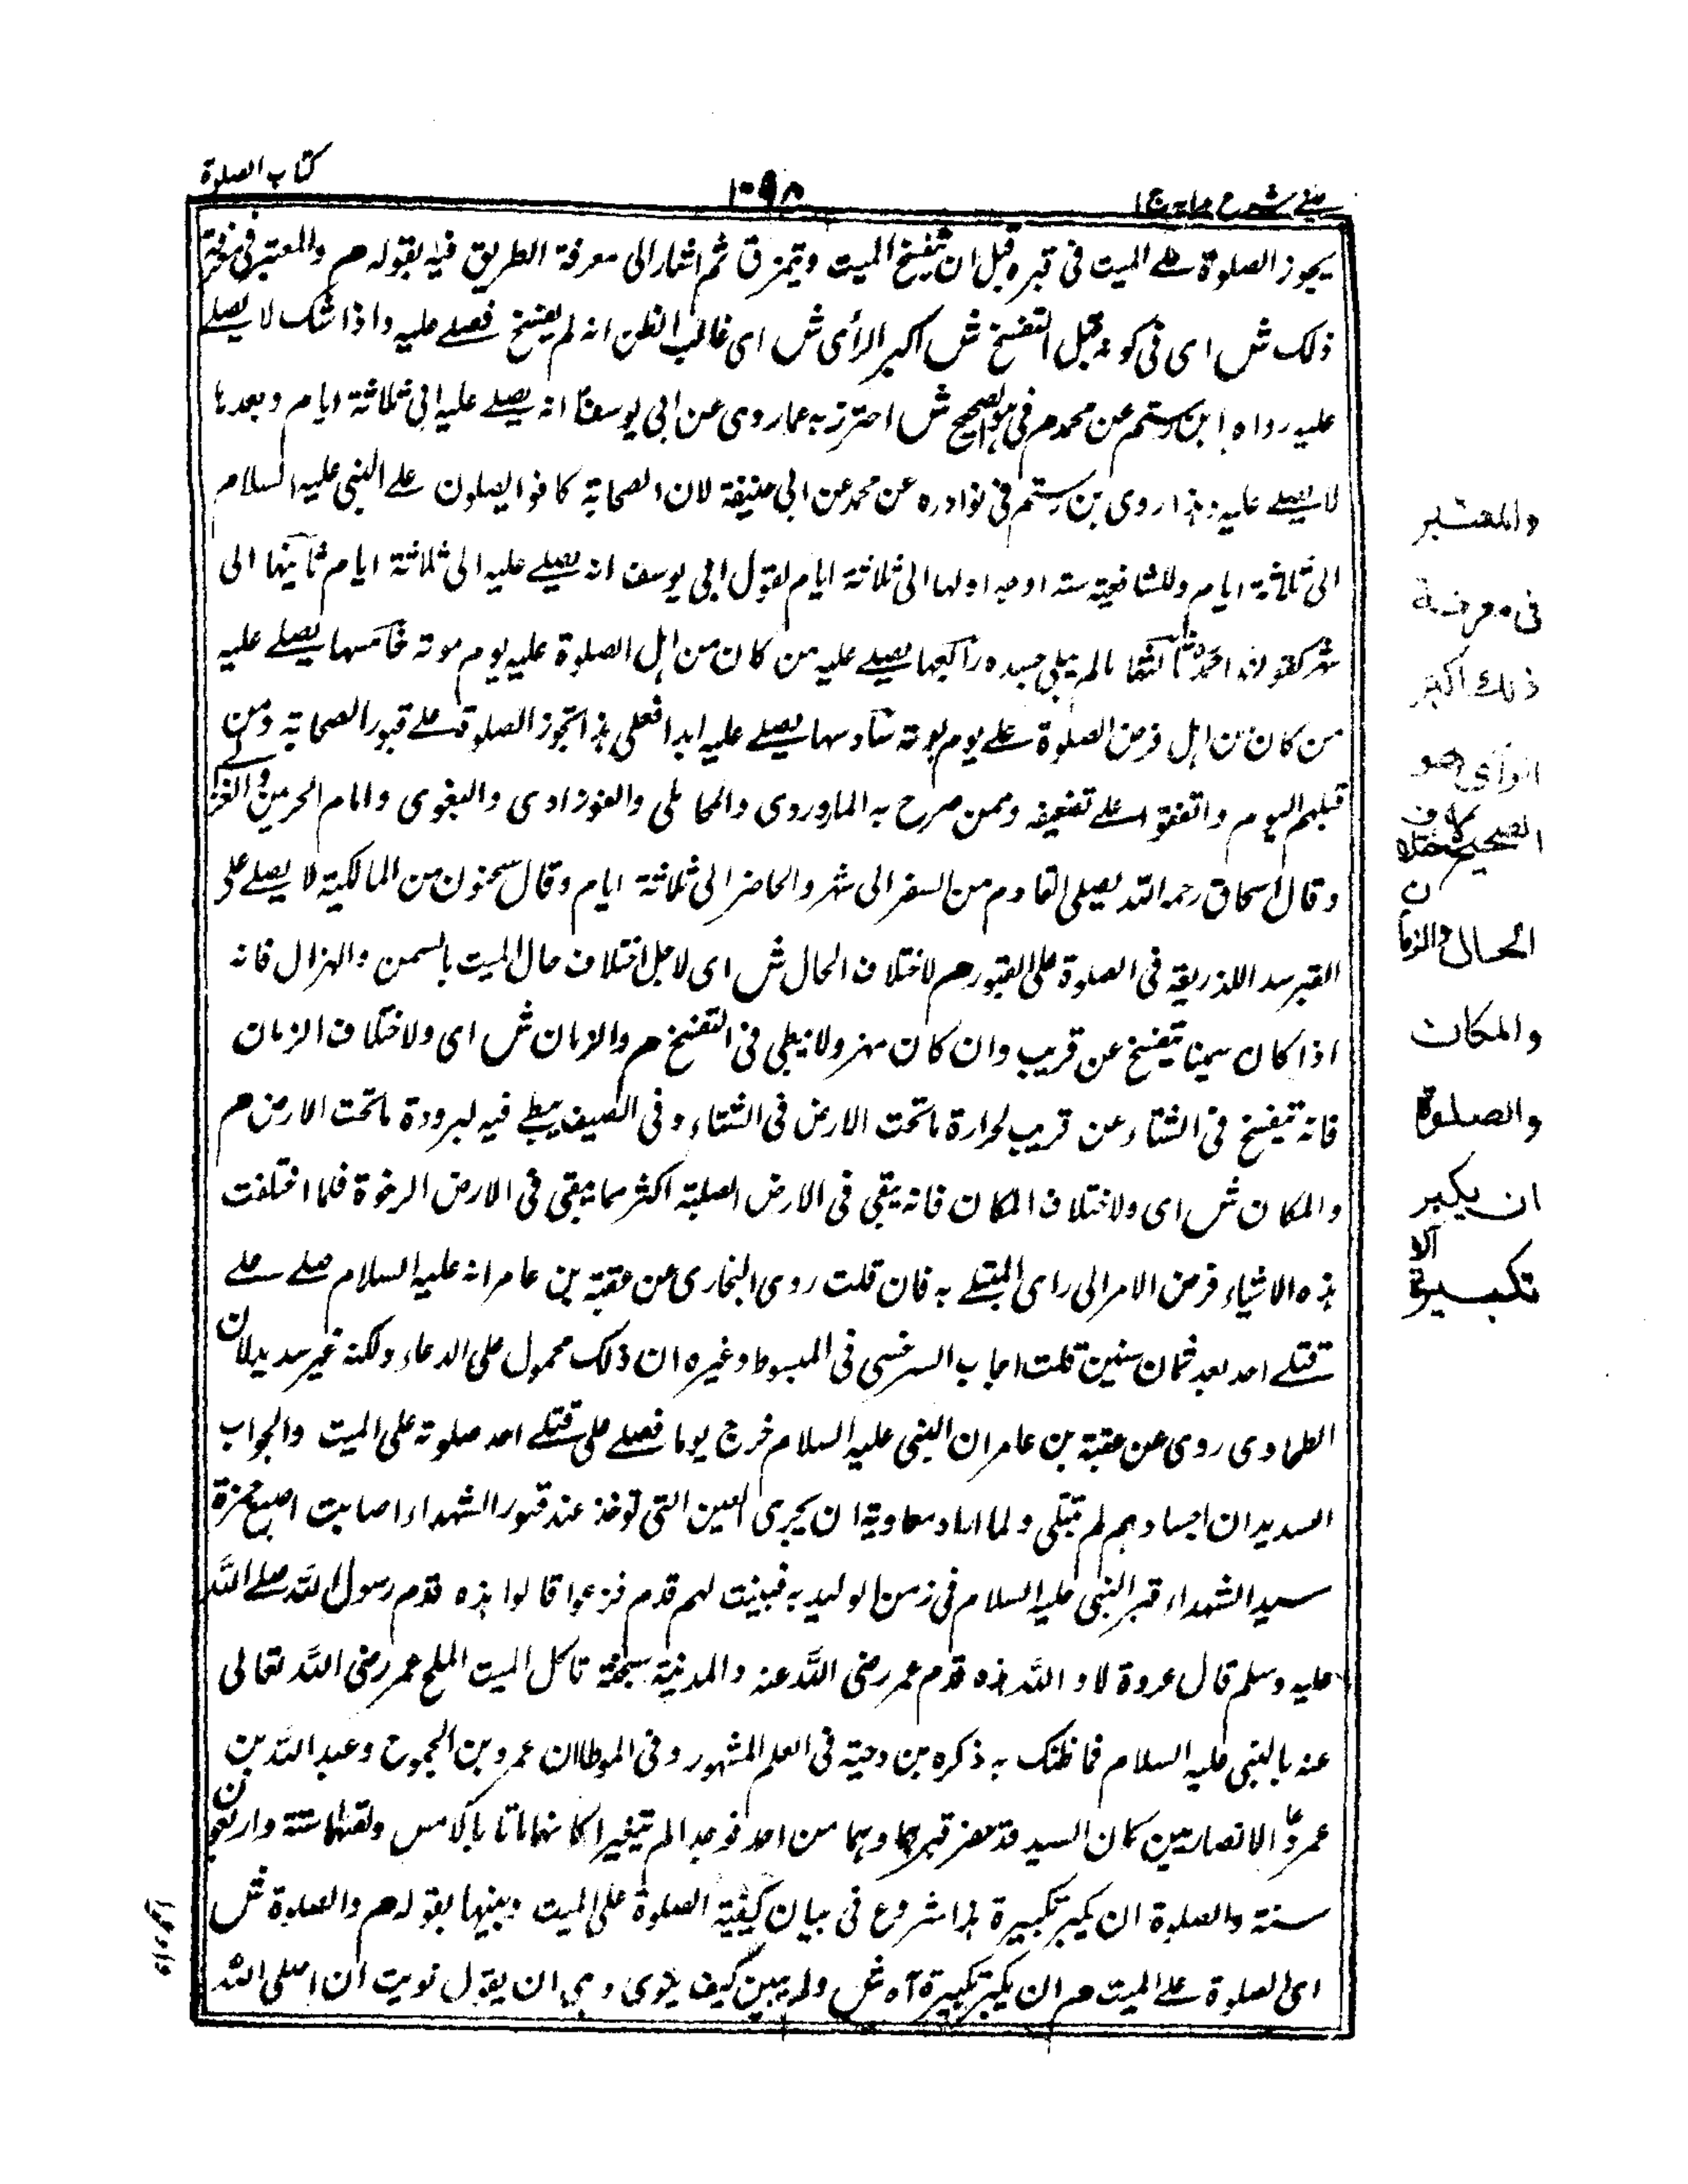 كتاب الصلوة
١٠٩٨
عينى شرح هداية ج ١
يجوز الصلوة على الميت فى قبره قبل ان يتفسخ الميت ويتمزق ثم اشار الى معرفة الطريق فيه بقوله م والمعتبر فى معرفة
ذلك ش اى فى كونه قبل التفسخ ش اكبر الرأى ش اى غالب الظن انه لم يتفسخ فصلى عليه واذا شك لا يصلى
عليه رواه ابن رستم عن محمد م هو الصحيح ش احترز به عما روى عن ابى يوسف انه يصلى عليه الى ثلاثة ايام وبعدها
لا يصلى عليه وهذا روى بن رستم فى نوادره عن محمد عن ابى حنيفة لان الصحابة كانوا يصلون على النبى عليه السلام
الى ثلاثة ايام وللشافعية ستة اوجه اولها الى ثلاثة ايام لقول ابى يوسف انه يصلى عليه الى ثلاثة ايام ثانيها الى
شهر كقول احمد ثالثها مالم يبلى جسده رابعها يصلى عليه من كان من اهل الصلوة عليه يوم موته خامسها يصلى عليه
من كان من اهل فرض الصلوة على يوم موته سادسها يصلى عليه ابدا فعلى هذا تجوز الصلوة على قبور الصحابة ومن
قبلهم اليوم واتفقوا على تضعيفه وممن صرح به الماوردى والمحاملى والفوزادى والبغوى وامام الحرمين والغزالى
وقال اسحاق رحمه الله يصلى القادم من السفر الى شهر والحاضر الى ثلاثة ايام وقال سحنون من المالكية لا يصلى على
القبر سد اللذريعة فى الصلوة على القبور م لاختلاف الحال ش اى لاجل اختلاف حال الميت بالسمن والهزال فانه
اذا كان سمينا يتفسخ عن قريب وان كان مهزولا يبطى فى التفسخ م والزمان ش اى ولاختلاف الزمان
فانه يتفسخ فى الشتاء عن قريب لحرارة ماتحت الارض فى الشتاء وفى الصيف يبطى فيه لبرودة ماتحت الارض م
والمكان ش اى ولاختلاف المكان فانه يبقى فى الارض الصلبة اكثر مما يبقى فى الارض الرخوة فلما اختلفت
هذه الاشياء فرض الامر الى راى المبتلى به فان قلت روى البخارى عن عقبة بن عامر انه عليه السلام صلى على
قتلى احد بعد ثمان سنين قلت اجاب السرخسى فى المبسوط وغيره ان ذلك محمول على الدعاء ولكنه غير سديد لان
الطحاوى روى عن عقبة بن عامر ان النبى عليه السلام خرج يوما فصلى على قتلى احد صلوته على الميت والجواب
السديد ان اجسادهم لم تبلى ولما اراد معاوية ان يجرى العين التى توخذ عند قبور الشهداء اصابت اصبع حمزة
سيد الشهداء قبر النبى عليه السلام فى زمن الوليد به فبينت لهم قدم فزعوا قالوا هذه قدم رسول الله صلى الله
عليه وسلم قال عروة لا والله هذه قدم عمر رضى الله عنه والمدينة سبخة تاكل الميت الملح عمر رضى الله تعالى
عنه بالنبى عليه السلام فما ظنك به ذكره بن دحية فى العلم المشهور وفى الموطا ان عمرو بن الجموح وعبد الله بن
عمرو الانصاريين كان السيد قد حفر قبرهما وهما من احد فوجدا لم يتغيرا كانهما ماتا بالامس ولقتلهما ستة واربعون
سنة والصلوة ان يكبر تكبيرة هذا شروع فى بيان كيفية الصلوة على الميت وبينها بقوله م والصلوة ش
اى الصلوة على الميت م ان يكبر تكبيرة آه ش ولم يبين كيف ينوى وهى ان يقول نويت ان اصلى الله
والمعتبر
فى معرفة
ذلك اكبر
الرأى هو
الصحيح لاختلاف
الحال والزمان
والمكان
والصلوة
ان يكبر
تكبيرة الا